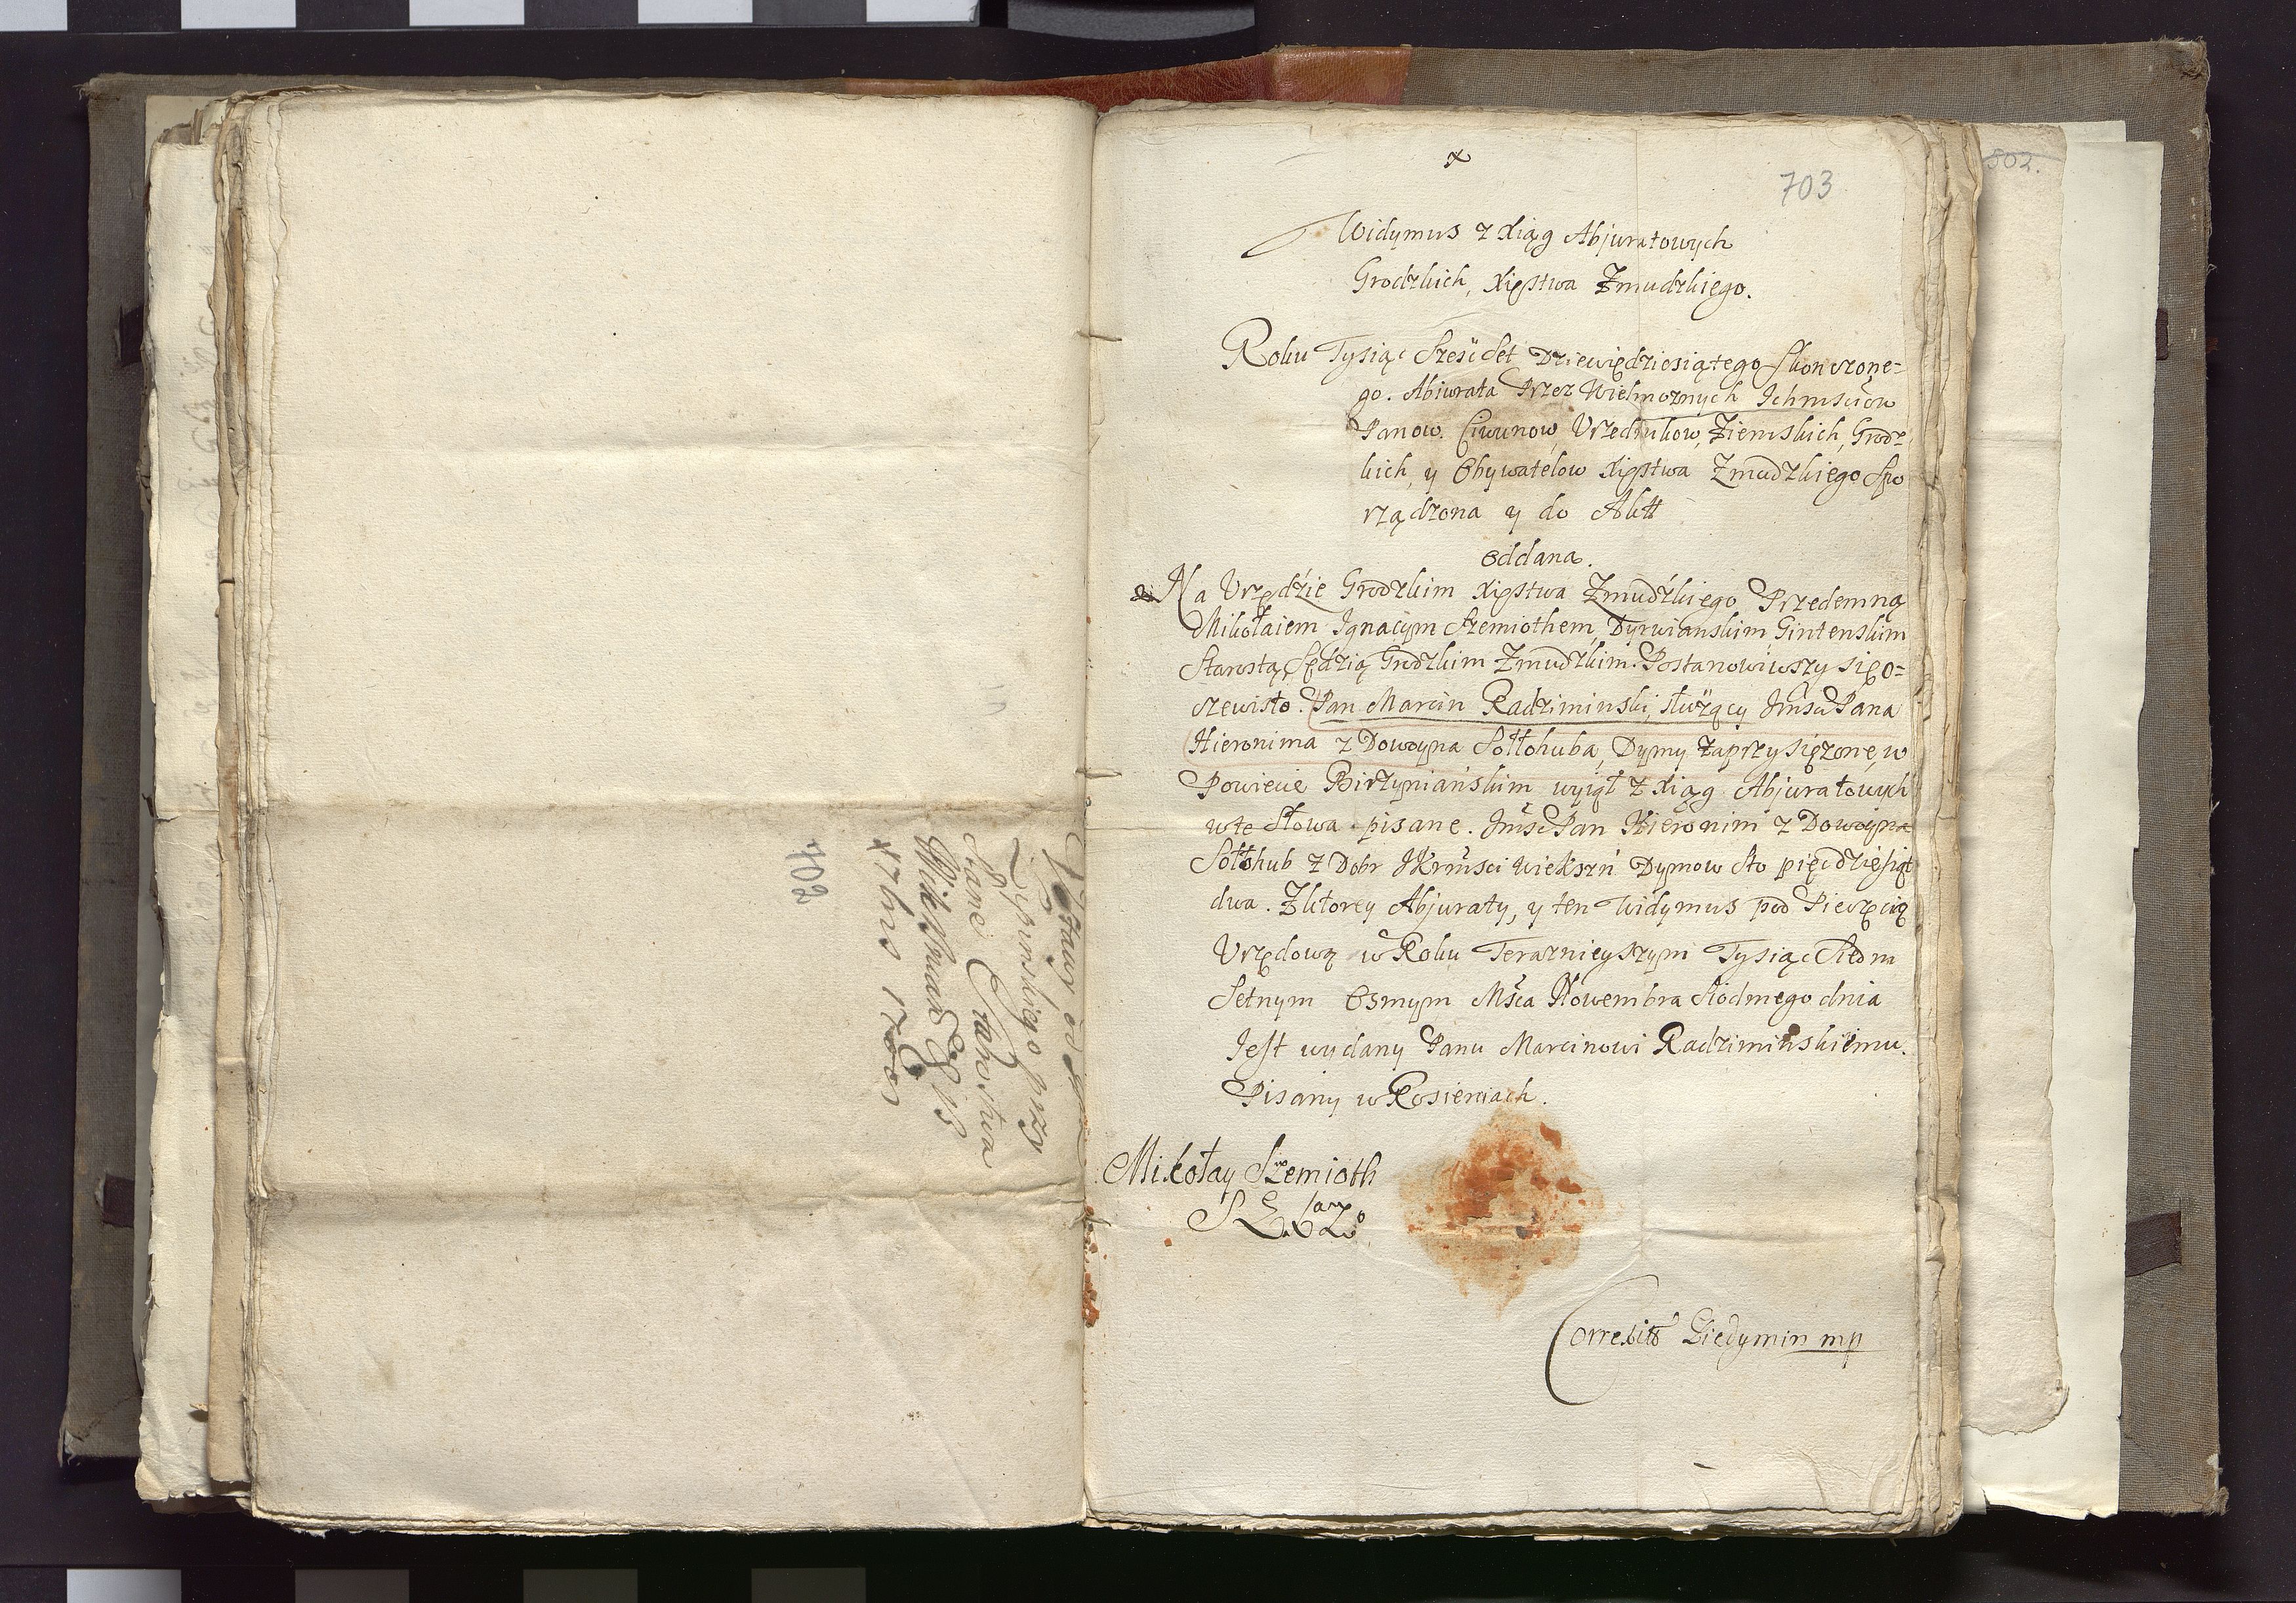 Wyznay od Jm
Zyrunskiego przy
Stane Starostwa
1708
702
x
703
802.
Widymus z Xiąg Abjuratowych
Grodzkich, Xięstwa Zmudzkiego.
Roku Tysiąc Sześćset Dziewiędziesiątego Skonczone-
go. Abiurata Przez Wielmoznych Ichmsciow
Panow. Ciwunow, Vrzednikow, Ziemskich, Grodz
kich, y Obywatelow Xięstwa Zmudzkiego Spo
rządzona y do Aktt
oddana.
Na Vrzędzie Grodzkim Xięstwa Zmudzkiego Przedemną
Mikołaiem Ignacym Szemiothem, Dyrwianskim Gintenskim
Starostą, Sędzią Grodzkim Zmudzkim. Postanowiwszy się o-
czewisto. Pan Marcin Radziminski, słuzący Jmsci Pana
Hieronima z Dowoyna Sołłohuba, Dymy zaprzysięzone, w
Powiecie Birzyniańskim wyiął z Xiąg Abjuratowych
w te słowa pisane. Jmsc Pan Hieronim z Dowoyna
Sołłohub z Dobr JKrmsci Wiekszń Dymow sto pięcdziesiąt
dwa. Zktorey Abjuraty, y ten Widymus pod Pieczęcią
Vrzędową w Roku Teraznieyszym Tysiąc Siedm
Setnym Osmym Msca Nowembra Siodmego dnia
Jest wydany Panu Marcinowi Radziminskiemu.
Pisany w Rosieniach.
Mikołay Szemioth
Correxitt Giedymin mp